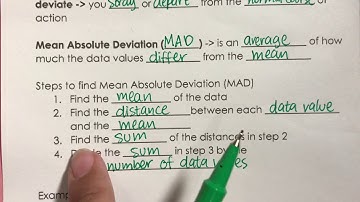 deviate -> you stray or depart from the normal course of
action
Mean Absolute Deviation (MAD) -> is an average of how
much the data values differ from the mean
Steps to find Mean Absolute Deviation (MAD)
1. Find the mean of the data
2. Find the distance between each data value
and the mean
3. Find the sum of the distances in step 2
4. the sum in step 3 by the
number of data values